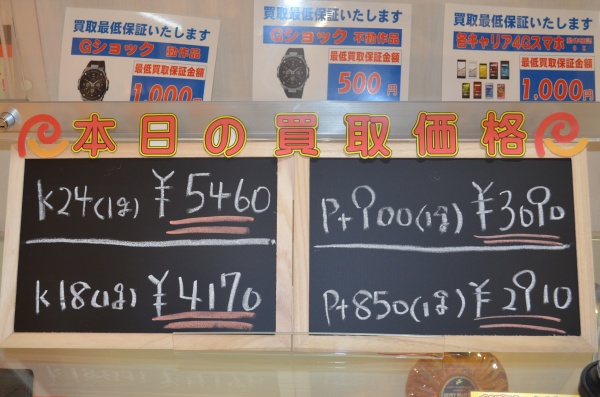 買取最低保証いたします
Gショック 動作品
最低買取保証金額
1,000円
買取最低保証いたします
Gショック 不動作品
最低買取保証金額
500円
買取最低保証いたします
各キャリア4Gスマホ
最低買取保証金額
1,000円
本日の買取価格
K24(1g) ¥5460
K18(1g) ¥4170
Pt900(1g) ¥3090
Pt850(1g) ¥2910